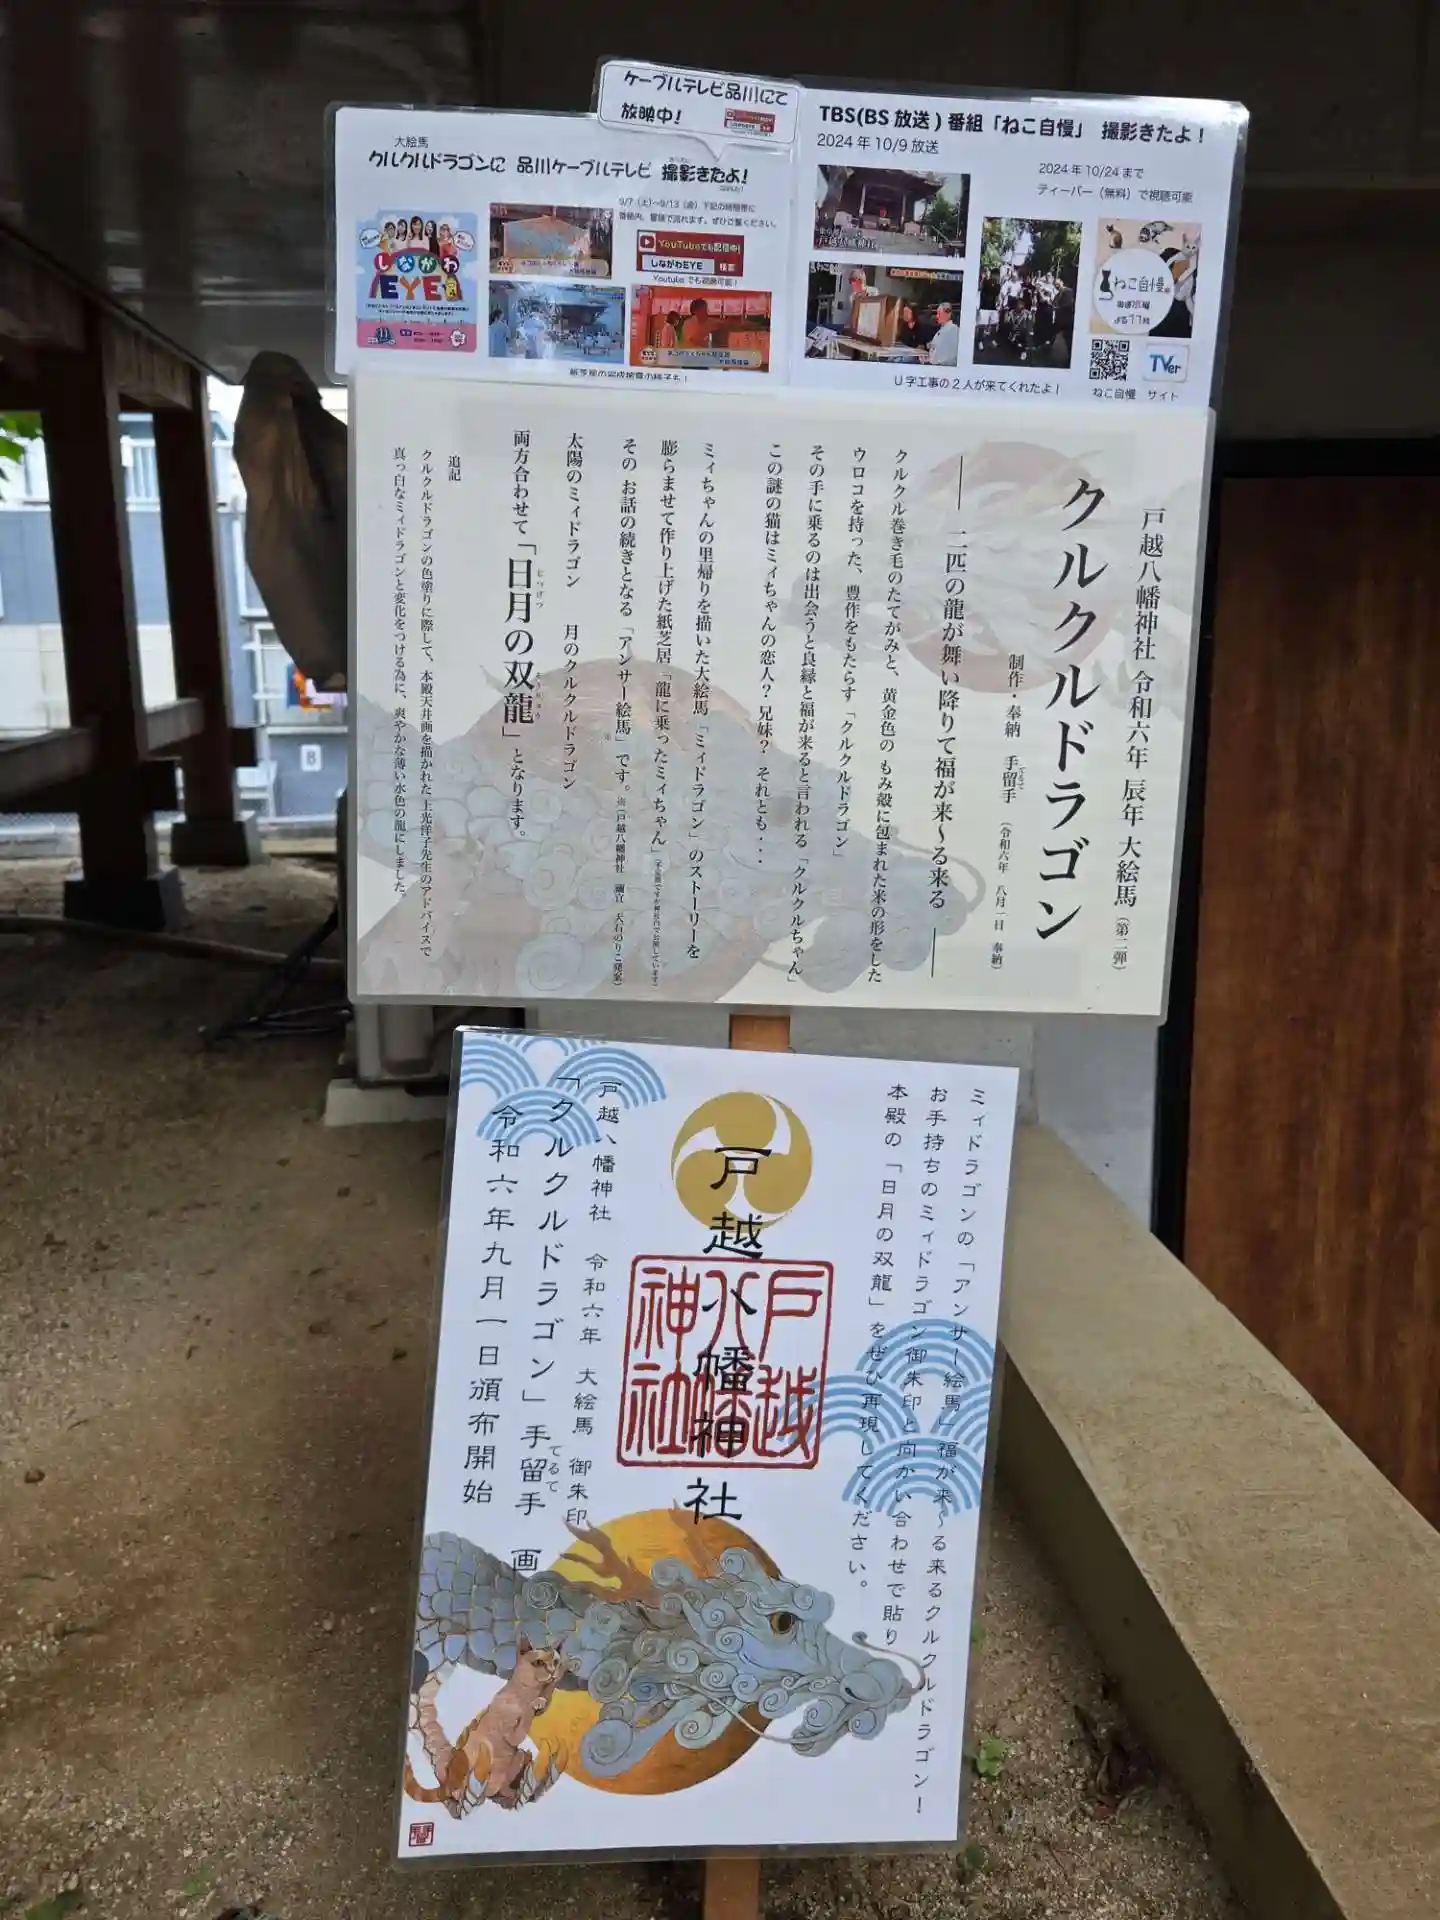 ケーブルテレビ品川にて
放映中!
大絵馬
クルクルドラゴンに 品川ケーブルテレビ 撮影きたよ!
9/7(土)~9/13(金)下記の時間帯に
番組内、冒頭で流れます。ぜひご覧ください。
しながわ
EYE
YouTubeでも配信中!
しながわEYE 検索
Youtubeでも視聴可能!
TBS(BS放送)番組「ねこ自慢」 撮影きたよ!
2024年10/9放送
2024年10/24まで
ティーバー(無料)で視聴可能
戸越八幡神社
ねこ自慢
U字工事の2人が来てくれたよ!
TVer
ねこ自慢 サイト
戸越八幡神社 令和六年 辰年 大絵馬(第二弾)
クルクルドラゴン
制作・奉納 手留手(令和六年 八月一日 奉納)
てるて
── 二匹の龍が舞い降りて福が来~る来る ──
クルクル巻き毛のたてがみと、黄金色の もみ殻に包まれた米の形をした
ウロコを持った、豊作をもたらす「クルクルドラゴン」
その手に乗るのは出会うと良縁と福が来ると言われる「クルクルちゃん」
この謎の猫はミィちゃんの恋人?兄妹?それとも・・・
ミィちゃんの里帰りを描いた大絵馬「ミィドラゴン」のストーリーを
膨らませて作り上げた紙芝居「龍に乗ったミィちゃん」
その お話の続きとなる「アンサー絵馬」です。※(戸越八幡神社 禰宜 大石のりこ発案)
太陽のミィドラゴン 月のクルクルドラゴン
両方合わせて「日月の双龍」となります。
じつげつ
そうりゅう
追記
クルクルドラゴンの色塗りに際して、本殿天井画を描かれた上光洋子先生のアドバイスで
真っ白なミィドラゴンと変化をつける為に、爽やかな薄い水色の龍にしました。
8
ミィドラゴンの「アンサー絵馬」福が来~る来るクルクルドラゴン!
お手持ちのミィドラゴン御朱印と向かい合わせで貼り
本殿の「日月の双龍」をぜひ再現してください。
戸越八幡神社
戸越
八幡
神社
戸越八幡神社 令和六年 大絵馬 御朱印
「クルクルドラゴン」手留手 画
てるて
令和六年九月一日頒布開始